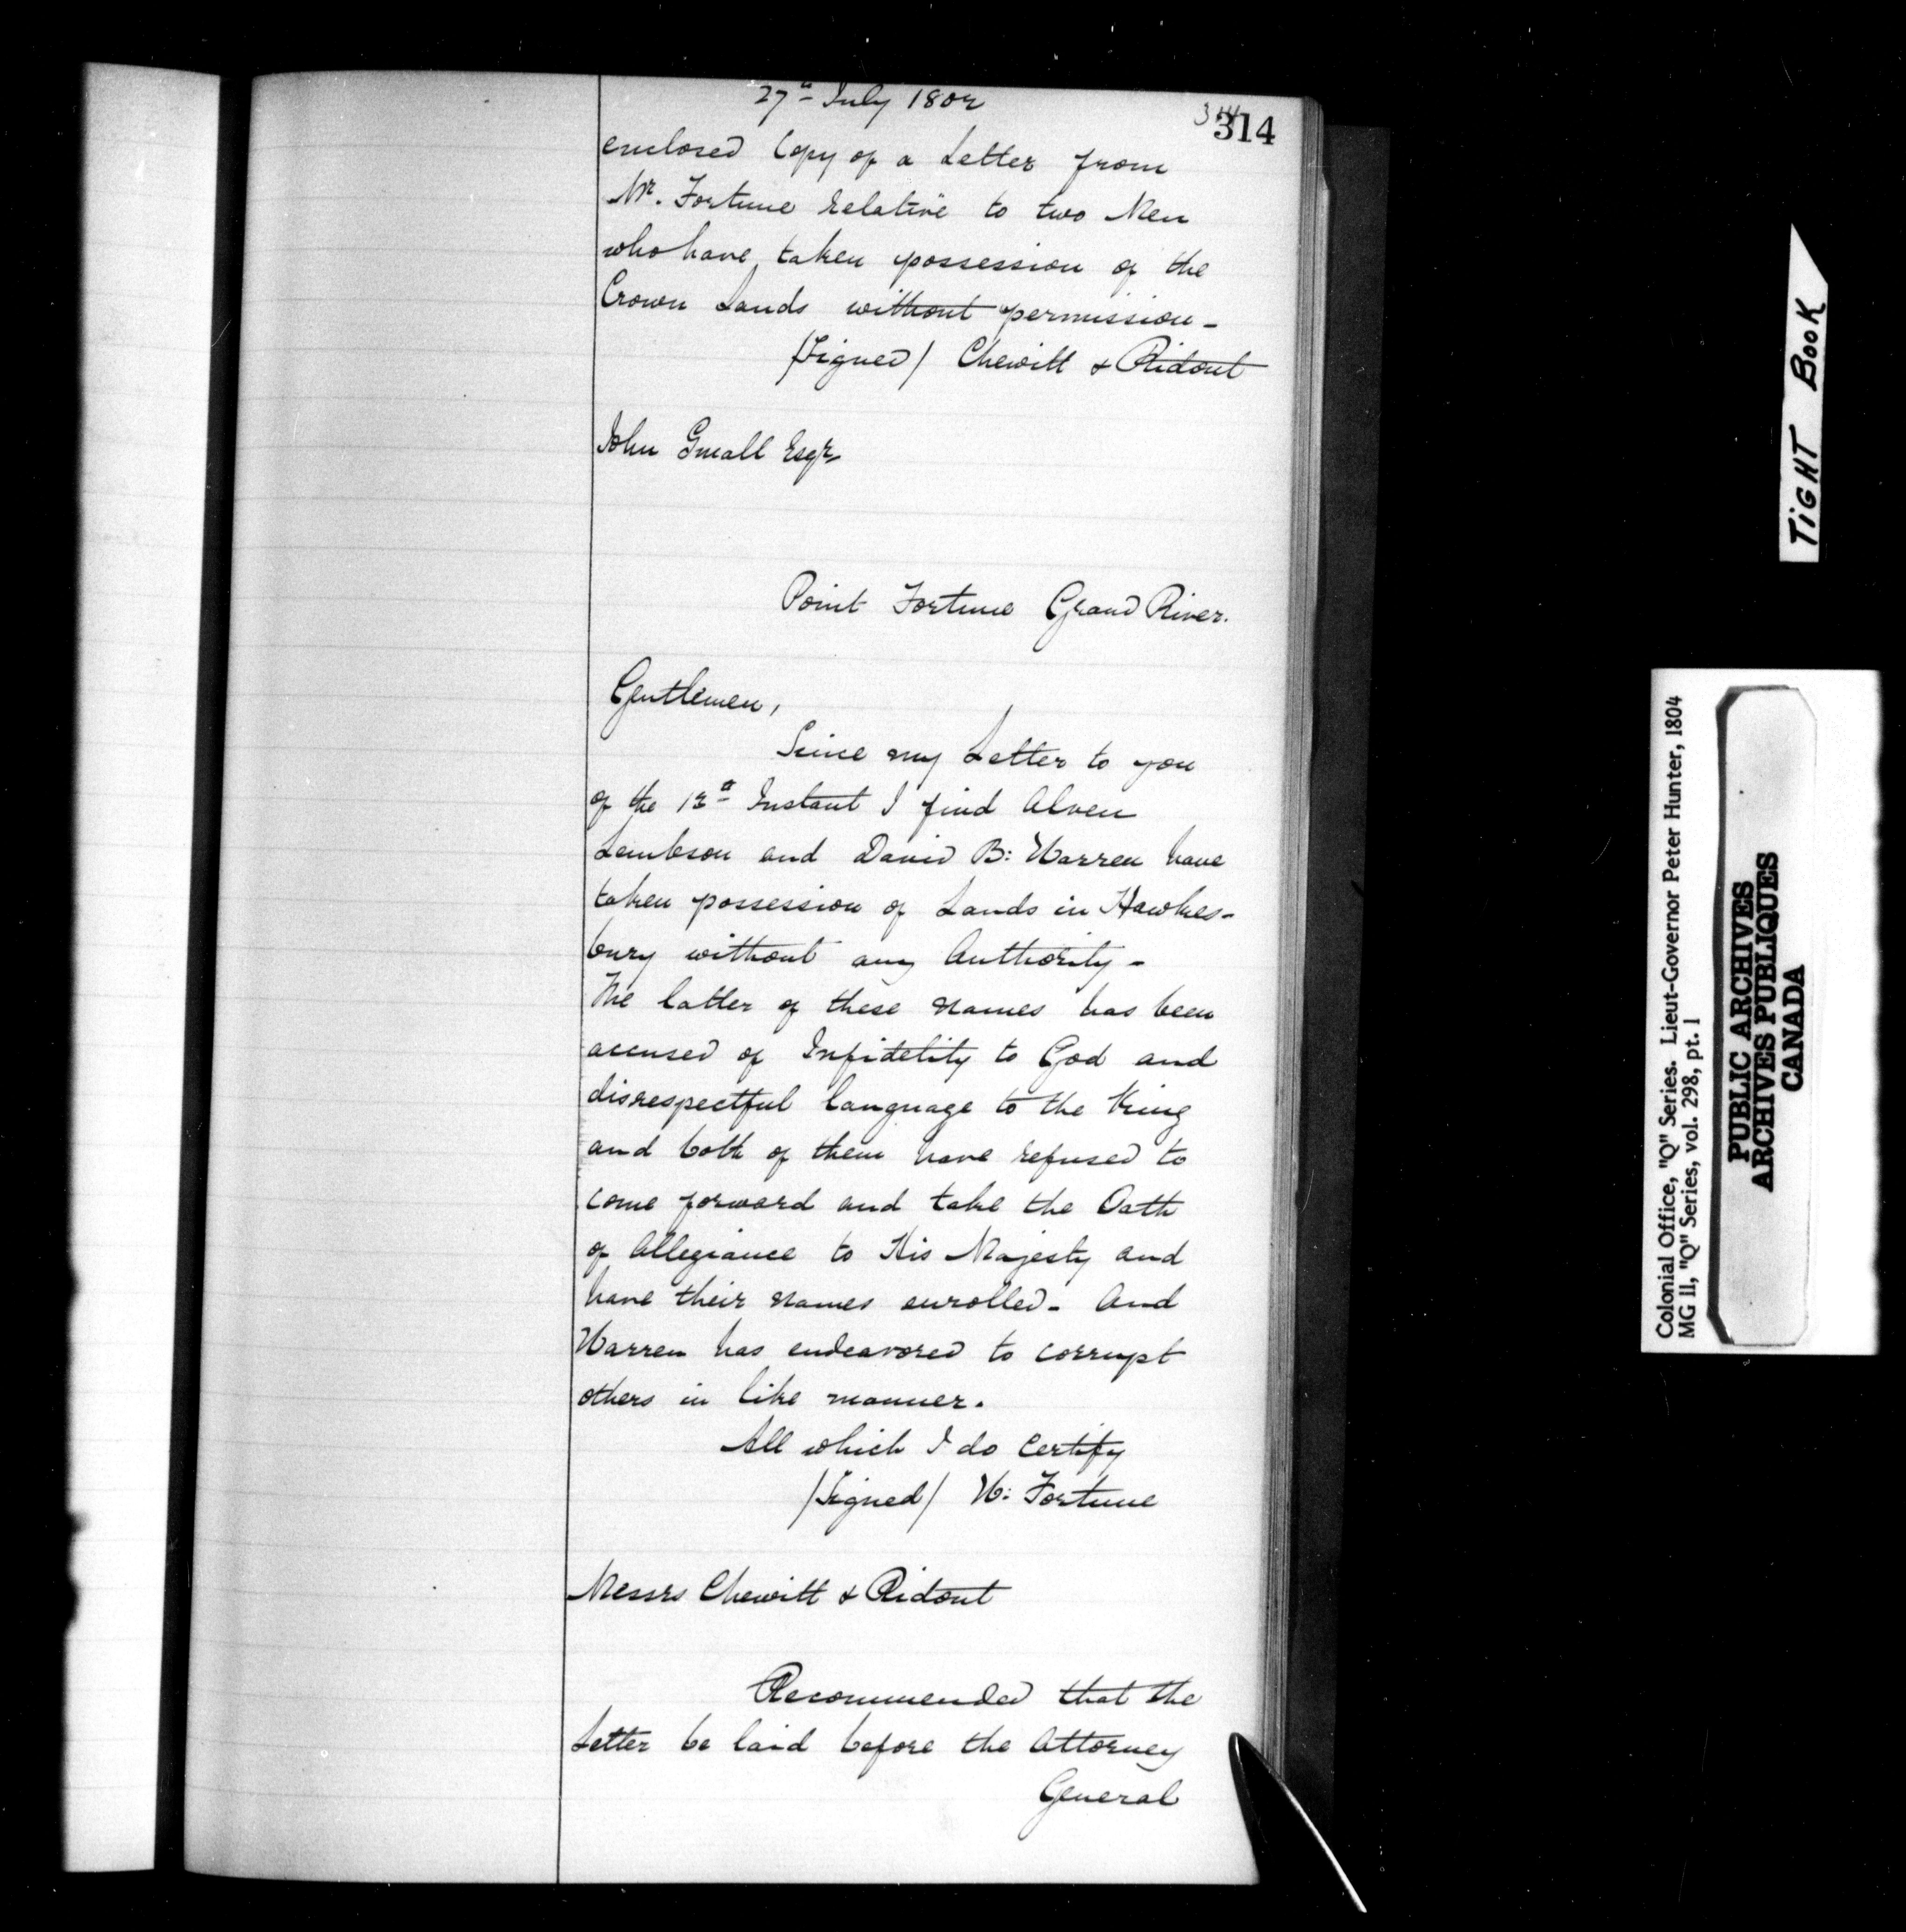 27th July 1802
314
314
enclosed Copy of a Letter from
Mr. Fortune relative to two Men
who have taken possession of the
Crown Lands without permission -
/Signed/ Chewitt & Ridout
John Small Esqr
Point Fortune Grand River.
Gentlemen,
Since my Letter to you
of the 13th Instant I find Alven
Lambson and David B: Warren have
taken possession of Lands in Hawkes-
bury without any Authority -
The latter of these names has been
accused of Infidelity to God and
disrespectful language to the King
and both of them have refused to
come forward and take the Oath
of Allegiance to His Majesty and
have their names enrolled - And
Warren has endeavored to corrupt
others in like manner.
All which I do certify
/Signed/ W: Fortune
Messrs Chewitt & Ridout
Recommended that the
Letter be laid before the Attorney
General
TIGHT BOOK
Colonial Office, "Q" Series. Lieut-Governor Peter Hunter, 1804
MG 11, "Q" Series, vol. 298, pt. 1
PUBLIC ARCHIVES
ARCHIVES PUBLIQUES
CANADA